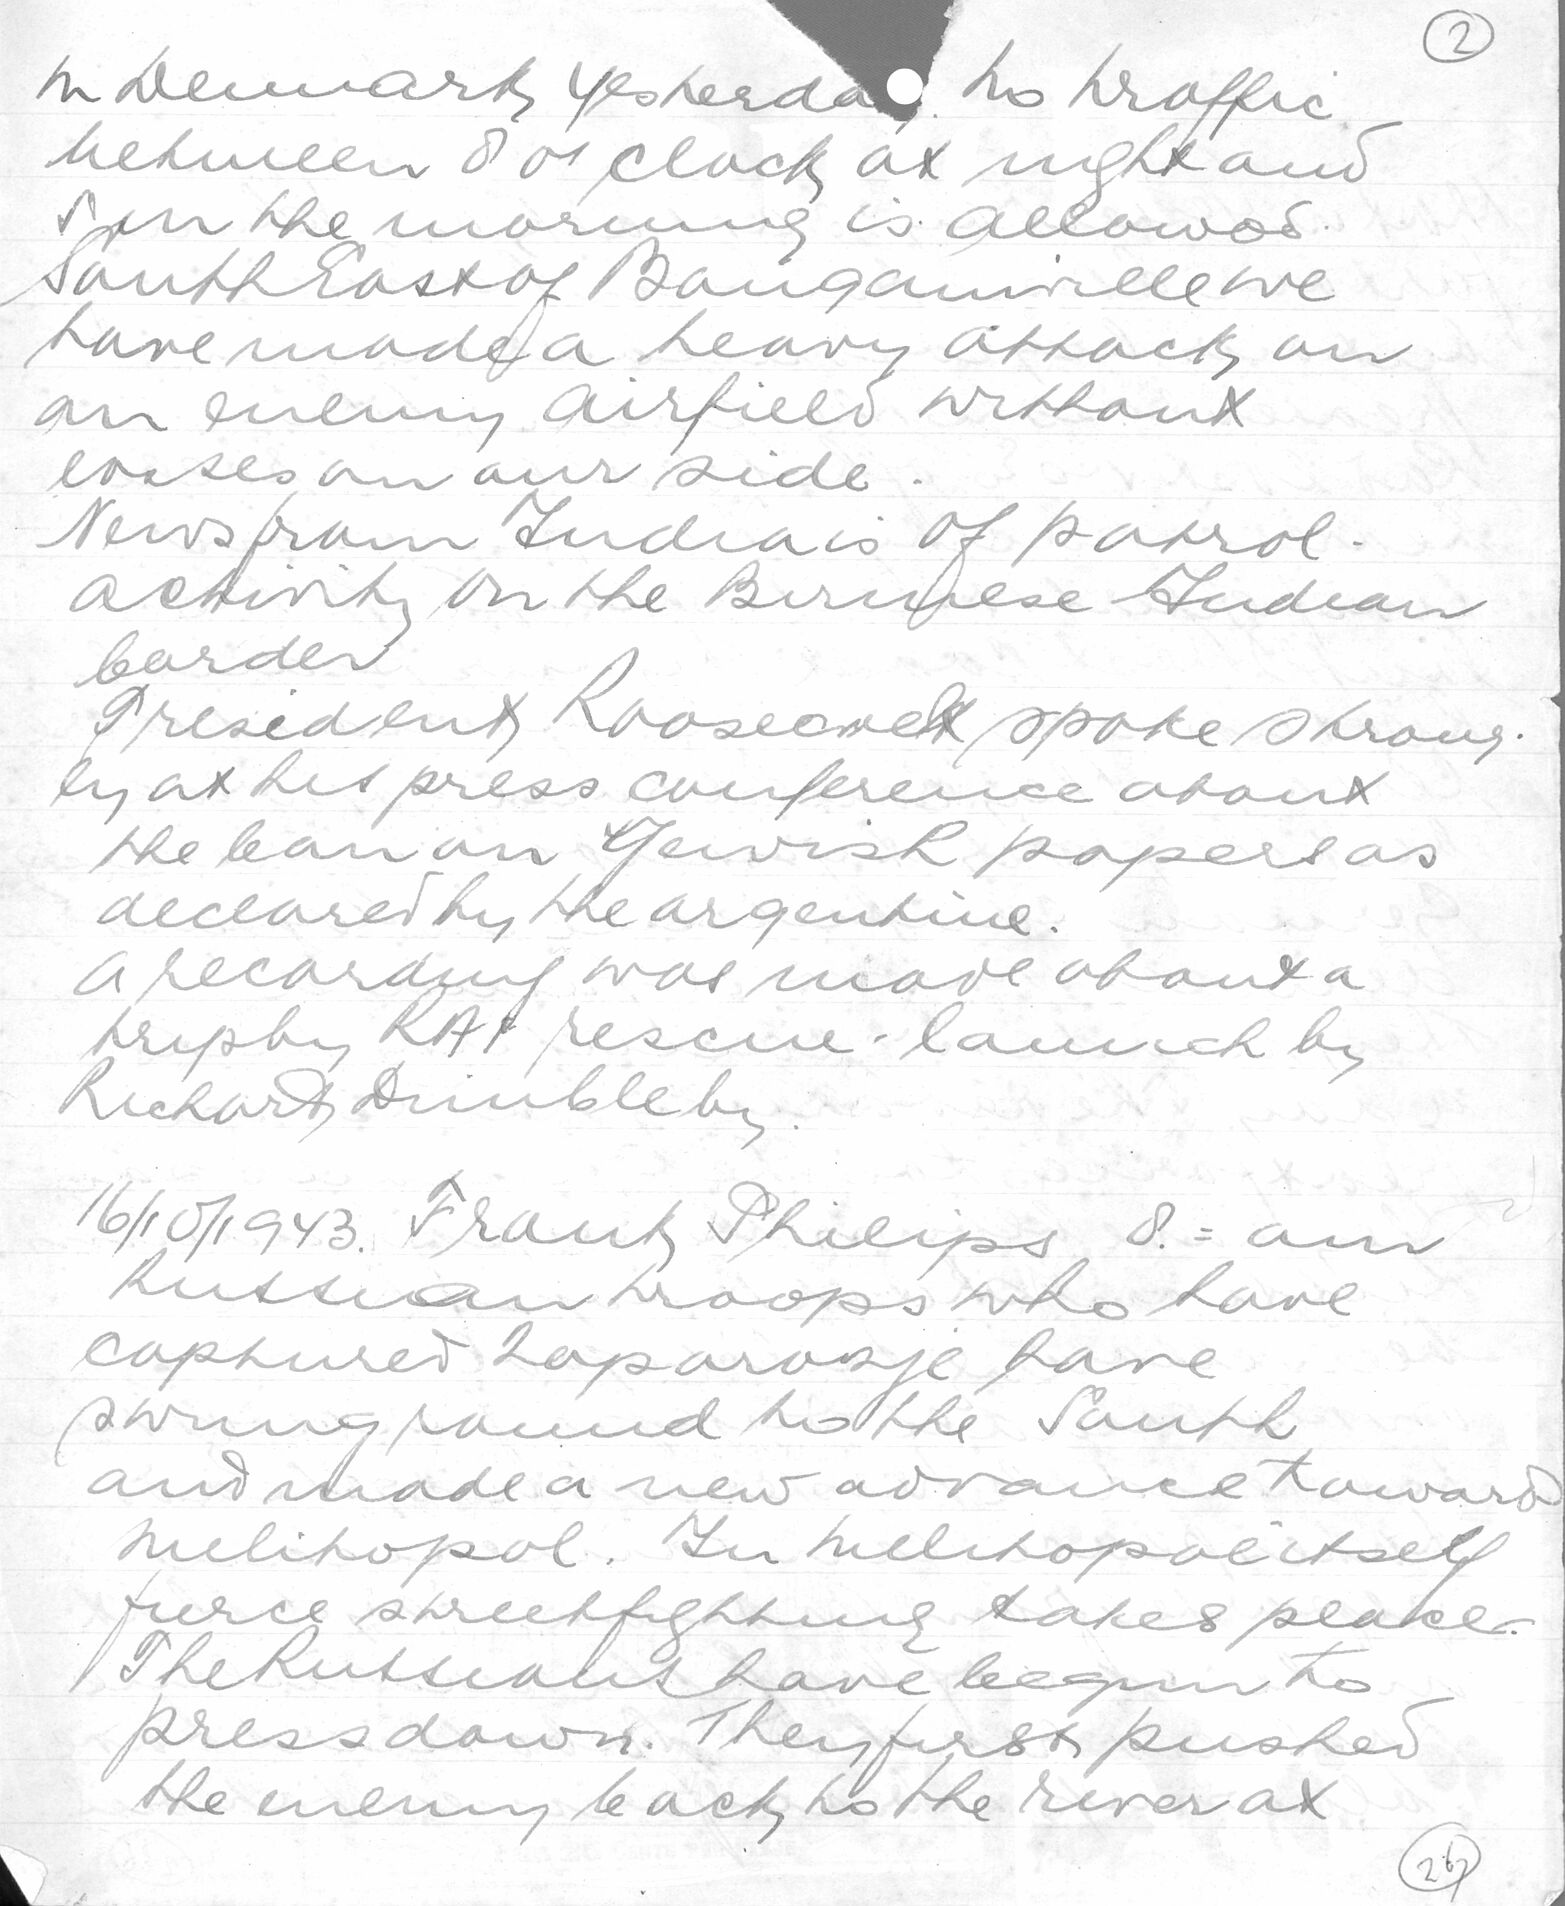 2
in Denmark yesterday. No traffic
between 8 o'clock at night and
5 in the morning is allowed.
South East of Bougainville we
have made a heavy attack on
an enemy airfield without
losses on our side.
News from India is of patrol-
activity on the Birmese Indian
border
President Roosevelt spoke strong-
ly at his press conference about
the ban on Yewish papers as
declared by the argentine.
A recording was made about a
trip by RAF rescue-launch by
Richard Dimbleby.
16/10/1943. Frank Philips 8.= am
Russian troops who have
captured Zaporozje have
swung round to the South
and made a new advance toward
Melitopol. In Melitopol itself
fierce streetfighting takes place.
The Russians have begun to
press down. They first pushed
the enemy back to the river at
26